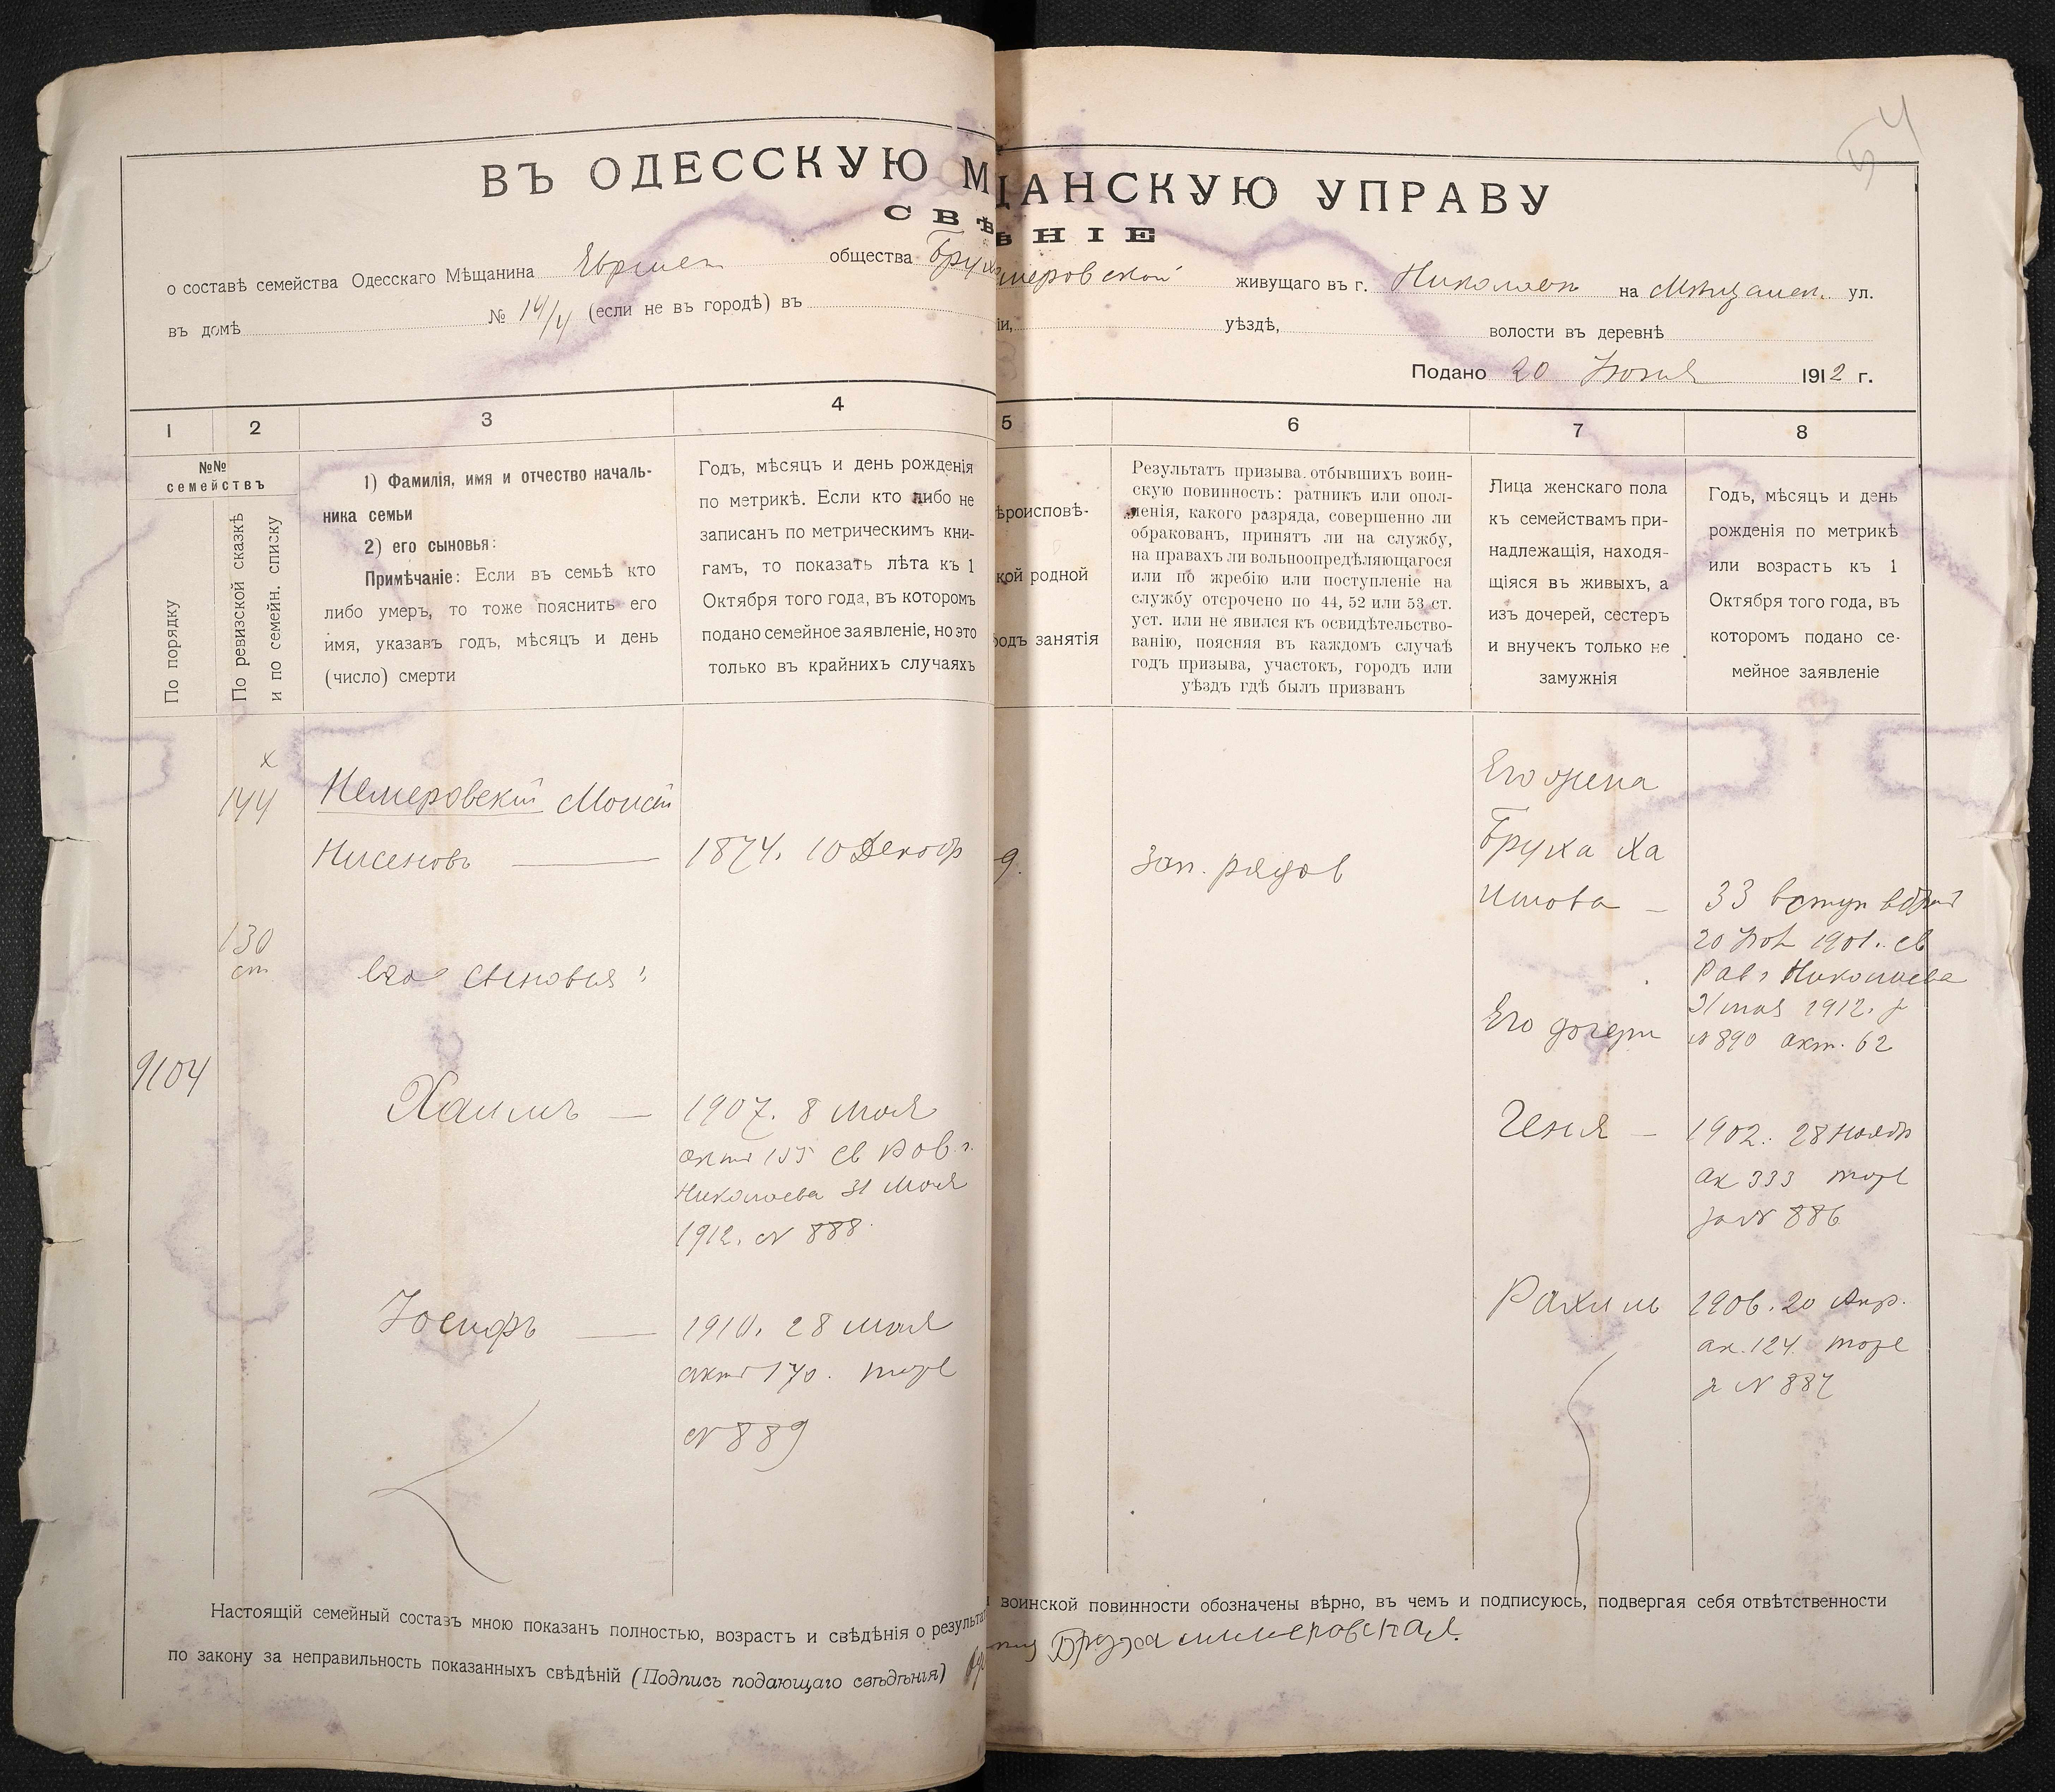 54
ВЪ ОДЕССКУЮ М ЩАНСКУЮ УПРАВУ
СВѢ ѢНІЕ
о составѣ семейства Одесскаго Мѣщанина общества живущаго въ г. Николаевѣ на Мѣщанск. ул.
въ домѣ № 14/4 (если не въ городѣ) въ іи, уѣздѣ, волости въ деревнѣ
Подано 20 Іюня 1912 г.
1 2 3 4 5 6 7 8
№№ семействъ
По порядку
По ревизской сказкѣ
и по семейн. списку
1) Фамилія, имя и отчество началь-
ника семьи
2) его сыновья:
Примѣчаніе: Если въ семьѣ кто
либо умеръ, то тоже пояснить его
имя, указавъ годъ, мѣсяцъ и день
(число) смерти
Годъ, мѣсяцъ и день рожденія
по метрикѣ. Если кто либо не
записанъ по метрическимъ кни-
гамъ, то показать лѣта къ 1
Октября того года, въ которомъ
подано семейное заявленіе, но это
только въ крайнихъ случаяхъ
ѣроисповѣ-
кой родной
родъ занятія
Результатъ призыва. отбывшихъ воин-
скую повинность: ратникъ или опол-
ченія, какого разряда, совершенно ли
обракованъ, принятъ ли на службу,
на правахъ ли вольноопредѣляющагося
или по жребію или поступленіе на
службу отсрочено по 44, 52 или 53 ст.
уст. или не явился къ освидѣтельство-
ванію, поясняя въ каждомъ случаѣ
годъ призыва, участокъ, городъ или
уѣздъ гдѣ былъ призванъ
Лица женскаго пола
къ семействамъ при-
надлежащія, находя-
щіяся въ живыхъ, а
изъ дочерей, сестеръ
и внучекъ только не
замужнія
Годъ, мѣсяцъ и день
рожденія по метрикѣ
или возрастъ къ 1
Октября того года, въ
которомъ подано се-
мейное заявленіе
х
144
130
ст
9104
Немеровскій Моисей
Нисеновъ
1874. 10 Декабр
Его сыновья:
Хаимъ
1907. 8 Мая
актъ 155 св Рав. г.
Николаева 31 Мая
1912. № 888
Іосифъ
1910. 28 мая
актъ 170. тоже
№ 889
зап. рядов
Его жена
Бруха Ха
имова
33 вступ в бракъ
1901. св
Рав г Николаева
31 мая 1912. з
№ 890 акт. 62
Его дочери
Геня
1902. 28 Нояб
ак 333 тоже
за № 886
Рахиль
1906. 20 Апр.
ак. 124. тоже
з № 887
Настоящій семейный составъ мною показанъ полностью, возрастъ и свѣдѣнія о результат воинской повинности обозначены вѣрно, въ чемъ и подписуюсь, подвергая себя отвѣтственности
по закону за неправильность показанныхъ свѣдѣній (Подпись подающаго свѣдѣнія) Бруха